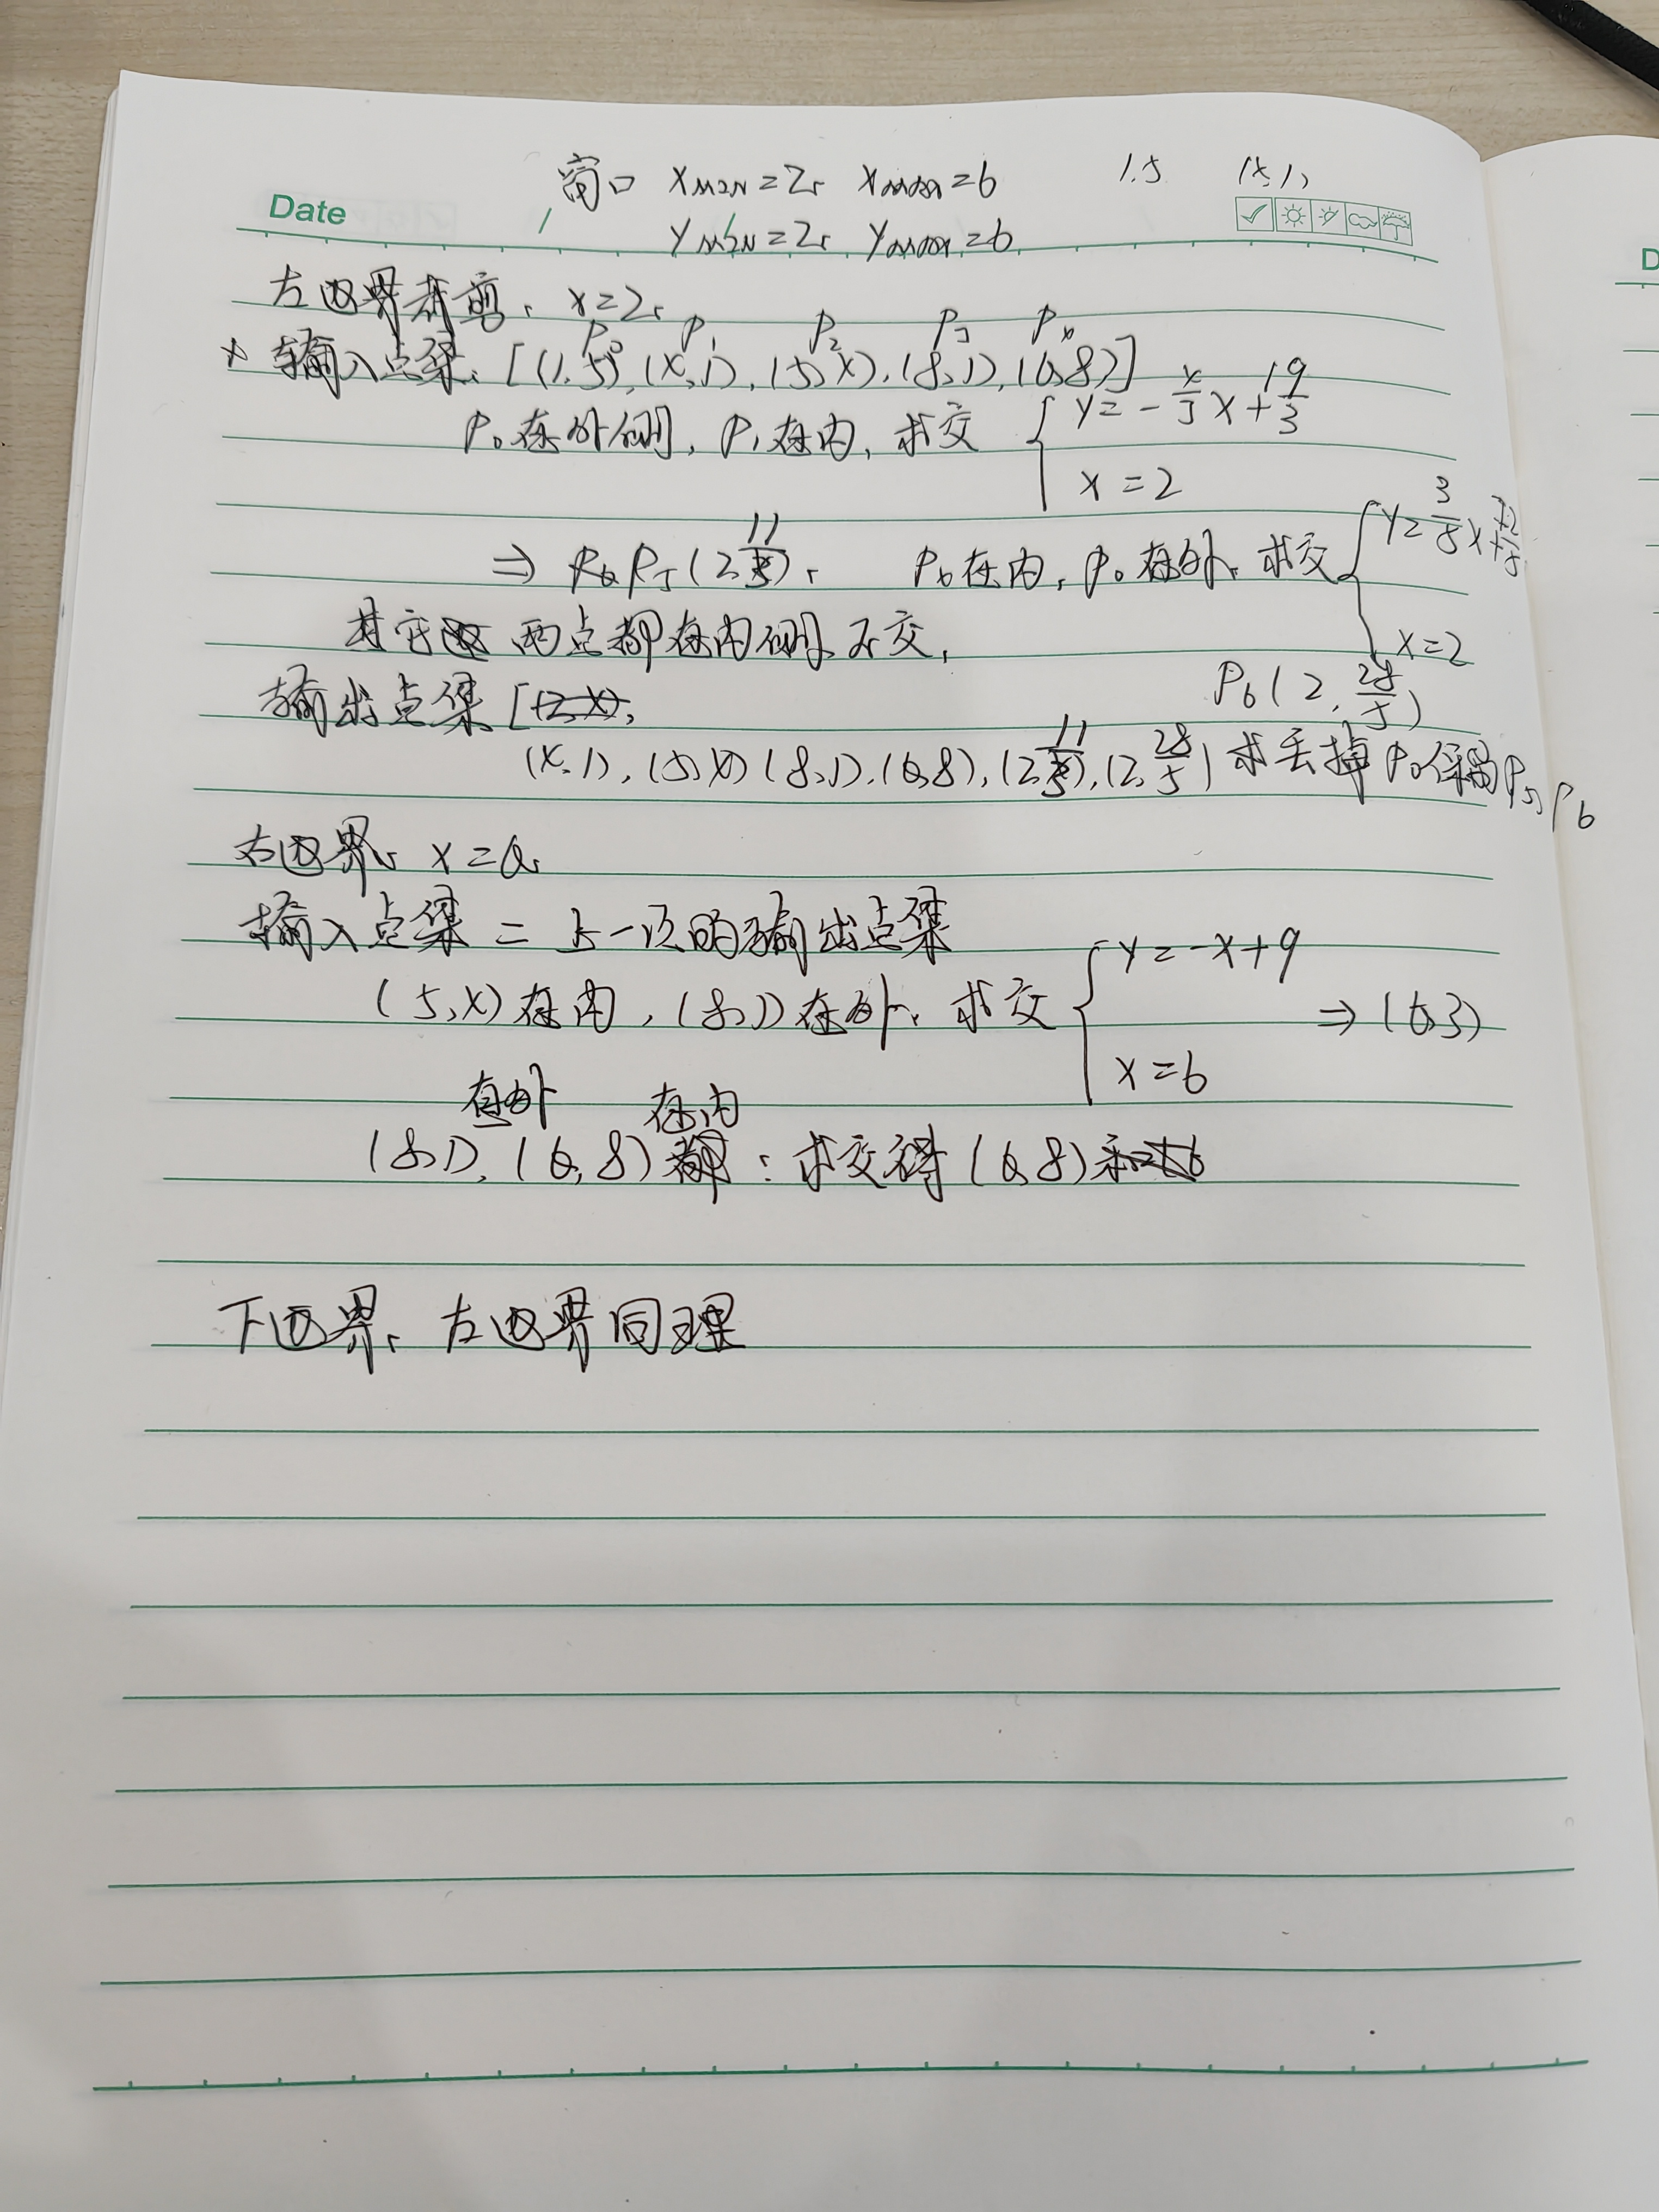 窗口 xmin=2, xmax=6 1.5 (4,1)
Date
ymin=2, ymax=6
左边界裁剪, x=2,
P0 P1 P2 P3 P4
输入点集: [(1,5), (4,1), (5,4), (8,1), (6,8)]
P0在外侧, P1在内, 求交 { y=-4/3x+19/3
x=2
⇒ P5(2,11/3), P4在内, P0在外, 求交 { y=3/5x+22/5
x=2
其它两点都在内侧不交,
P6(2, 28/5)
输出点集 [
(4,1), (5,4) (8,1), (6,8), (2,11/3), (2,28/5) 丢掉P0保留P5, P6
右边界, x=6,
输入点集 = 上一次的输出点集
(5,4)在内, (8,1)在外, 求交 { y=-x+9
x=6
⇒ (6,3)
在外 在内
(8,1), (6,8) : 求交得 (6,8)
下边界, 左边界同理
D